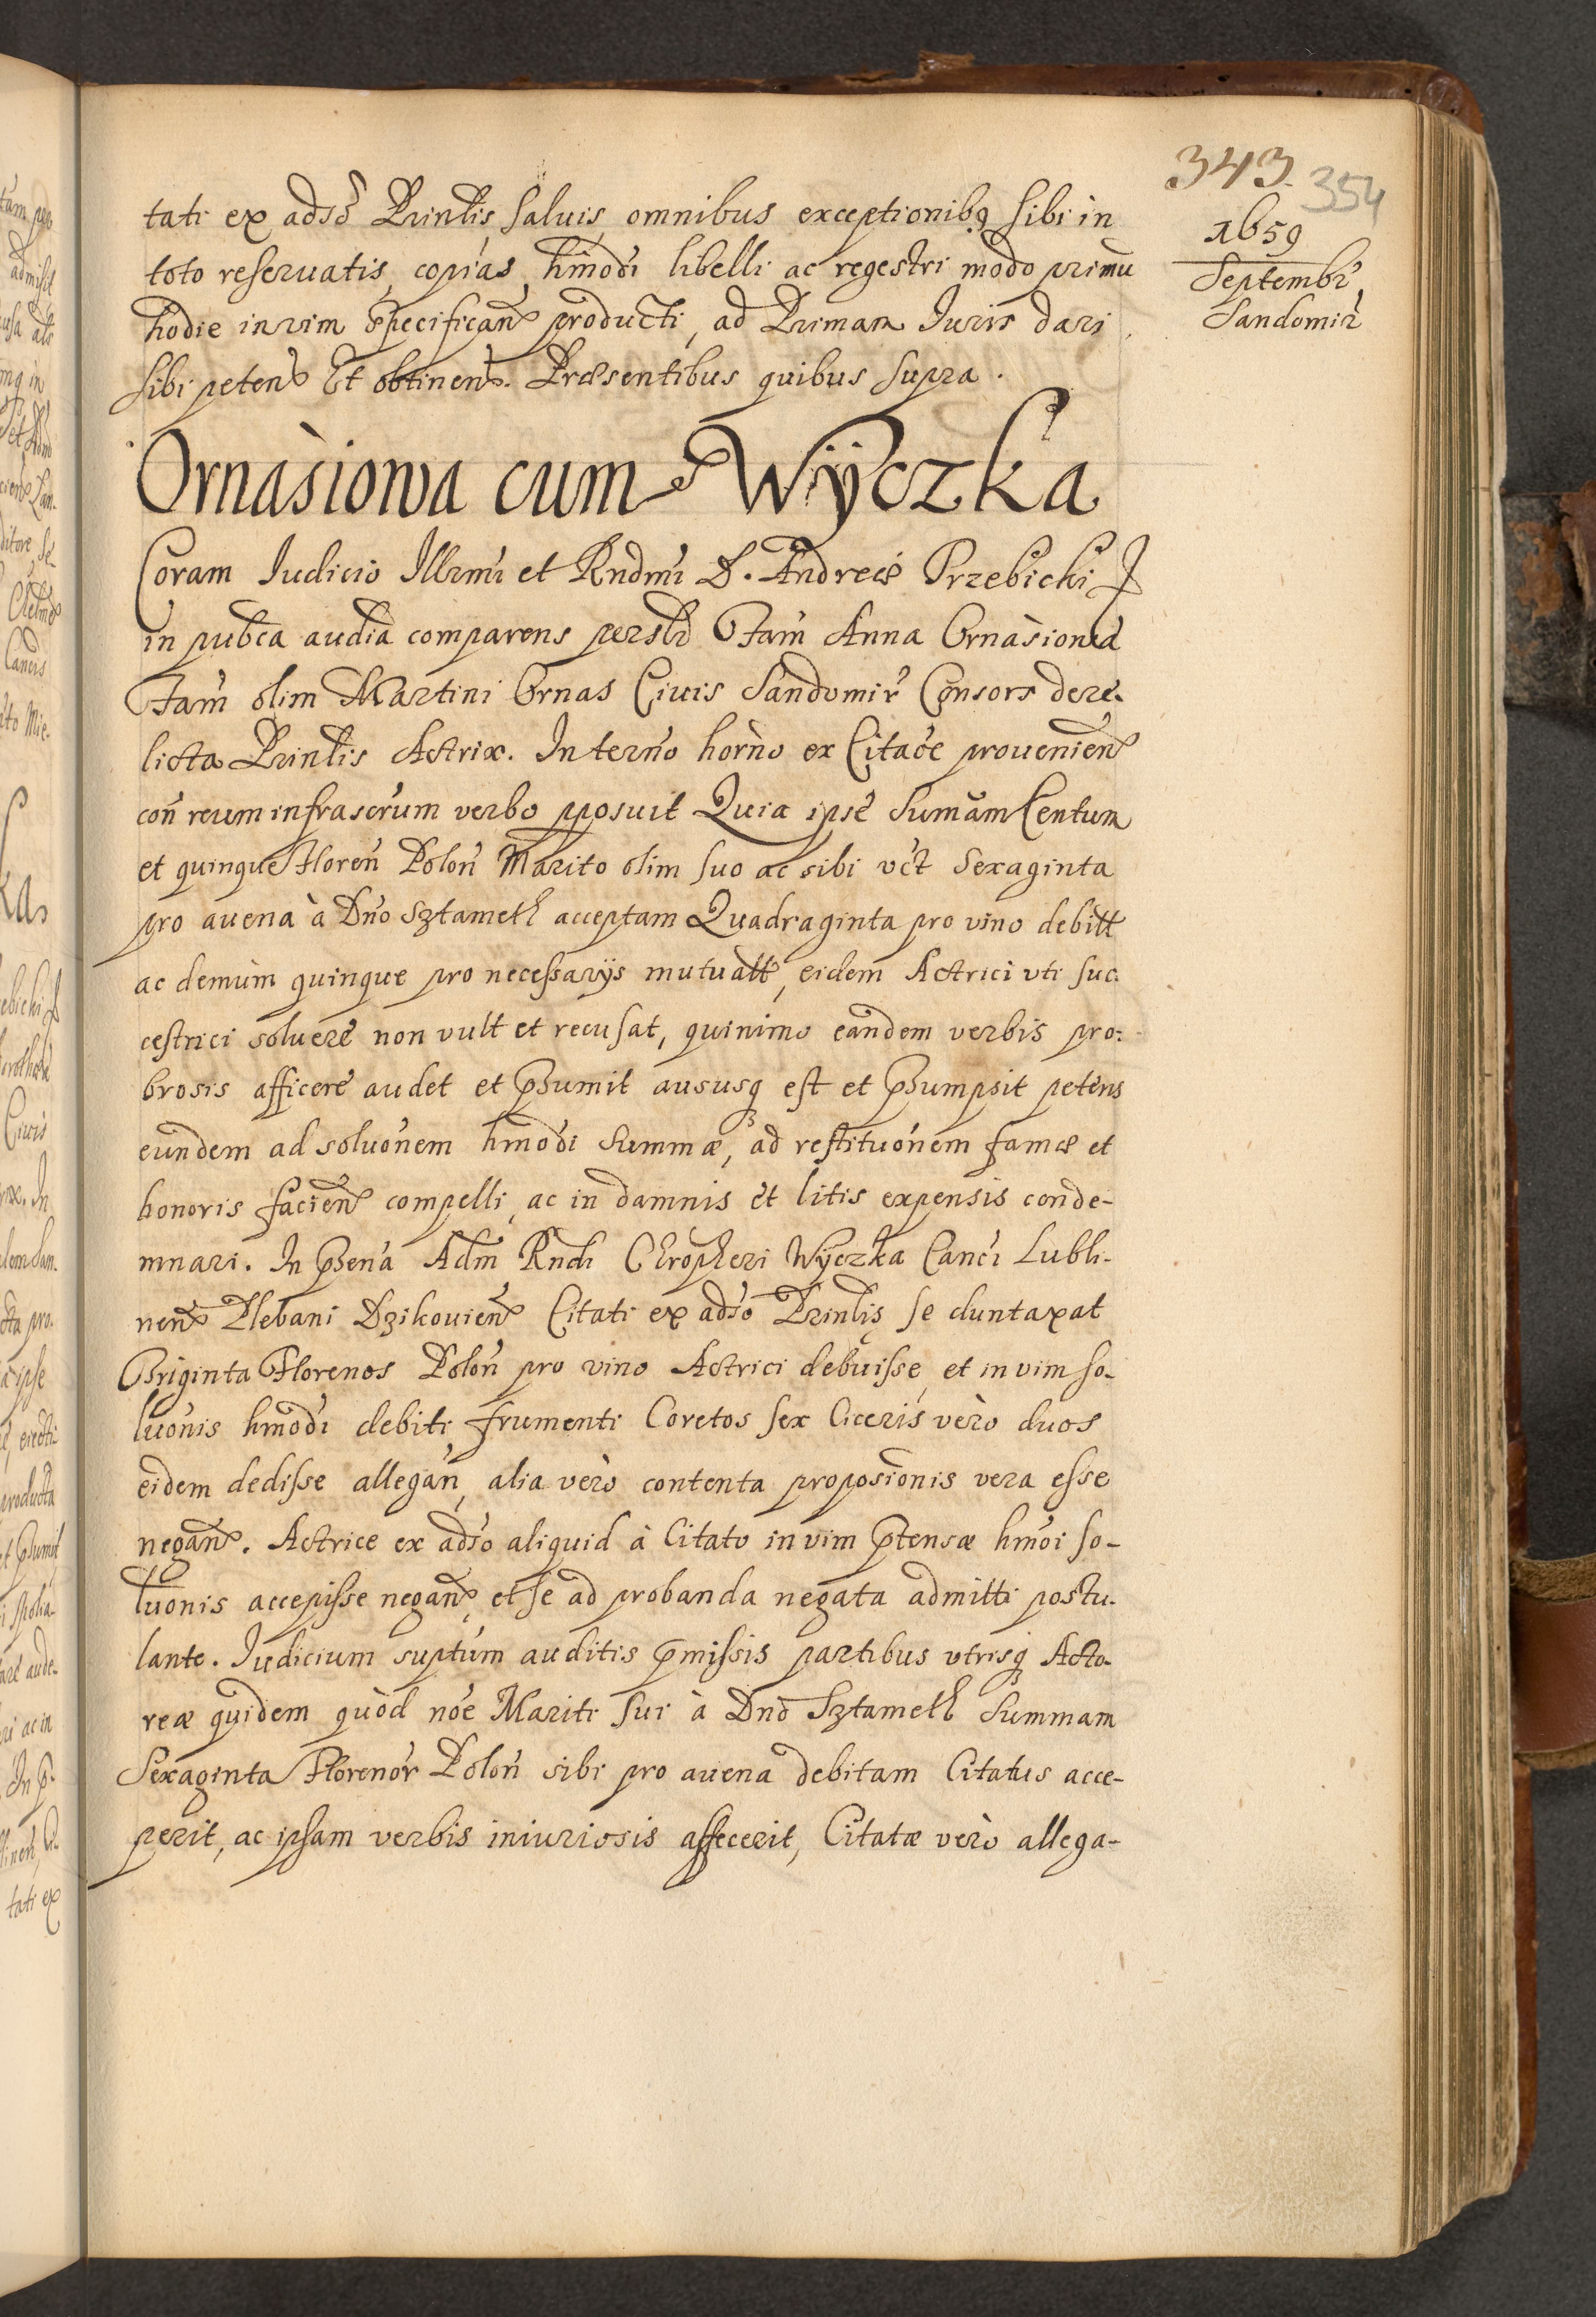 343. 354
1659
Septembr
Sandomir
tati ex adso Prinlis saluis omnibus exceptionibq sibi in
toto reseruatis, copias hmodi libelli ac regestri modo primu
hodie in vim specifican producti, ad Primam Iuris dari
sibi peten et obtinen. Præsentibus quibus supra.
Ornàsiowa cum Wÿczka
Coram Iudicio Illrmi et Rndmi D. Andreæ Przebicki
in pubca audia comparens persl Fam Anna Ornàsiowa
Fam olim Martini Ornas Ciuis Sandomir Consors dere-
licta Prinlis Actrix. In terno horno ex Citaoe prouenien
con reum infrascrum verbo pposuit Quia ipse Sumam Centum
et quinque Floren Polon Marito olim suo ac sibi vct Sexaginta
pro auena à Dno Sztameth acceptam Quadraginta pro vino debitt
ac demùm quinque pro necessarijs mutuatt, eidem Actrici vti suc-
cestrici soluere non vult et recusat, quinimo eandem verbis pro:
brosis afficere audet et psumit aususq est et psumpsit petens
eundem ad soluonem hmodi Summæ, ad restituonem famæ et
honoris facien compelli, ac in damnis et litis expensis conde-
mnari. In psena Adm Rndi Chropheri Wyczka Canci Lubli-
nen Plebani Dzikouien Citati ex adso Prinlis se duntaxat
Triginta Florenos Polon pro vino Actrici debuisse, et in vim so-
luonis hmodi debiti frumenti Coretos sex Ciceris verò duos
eidem dedisse allegan, alia verò contenta proposionis vera esse
negan. Actrice ex adso aliquid à Citato in vim ptensæ hmoi so-
luonis accepisse negan, et se ad probanda negata admitti postu-
lante. Iudicium suptum auditis pmissis partibus vtrisq Acto-
reæ quidem quòd noe Mariti sui à Dno Sztameth Summam
Sexaginta Florenor Polon sibi pro auena debitam Citatus acce-
perit, ac ipsam verbis iniuriosis affecerit, Citatæ verò allega-